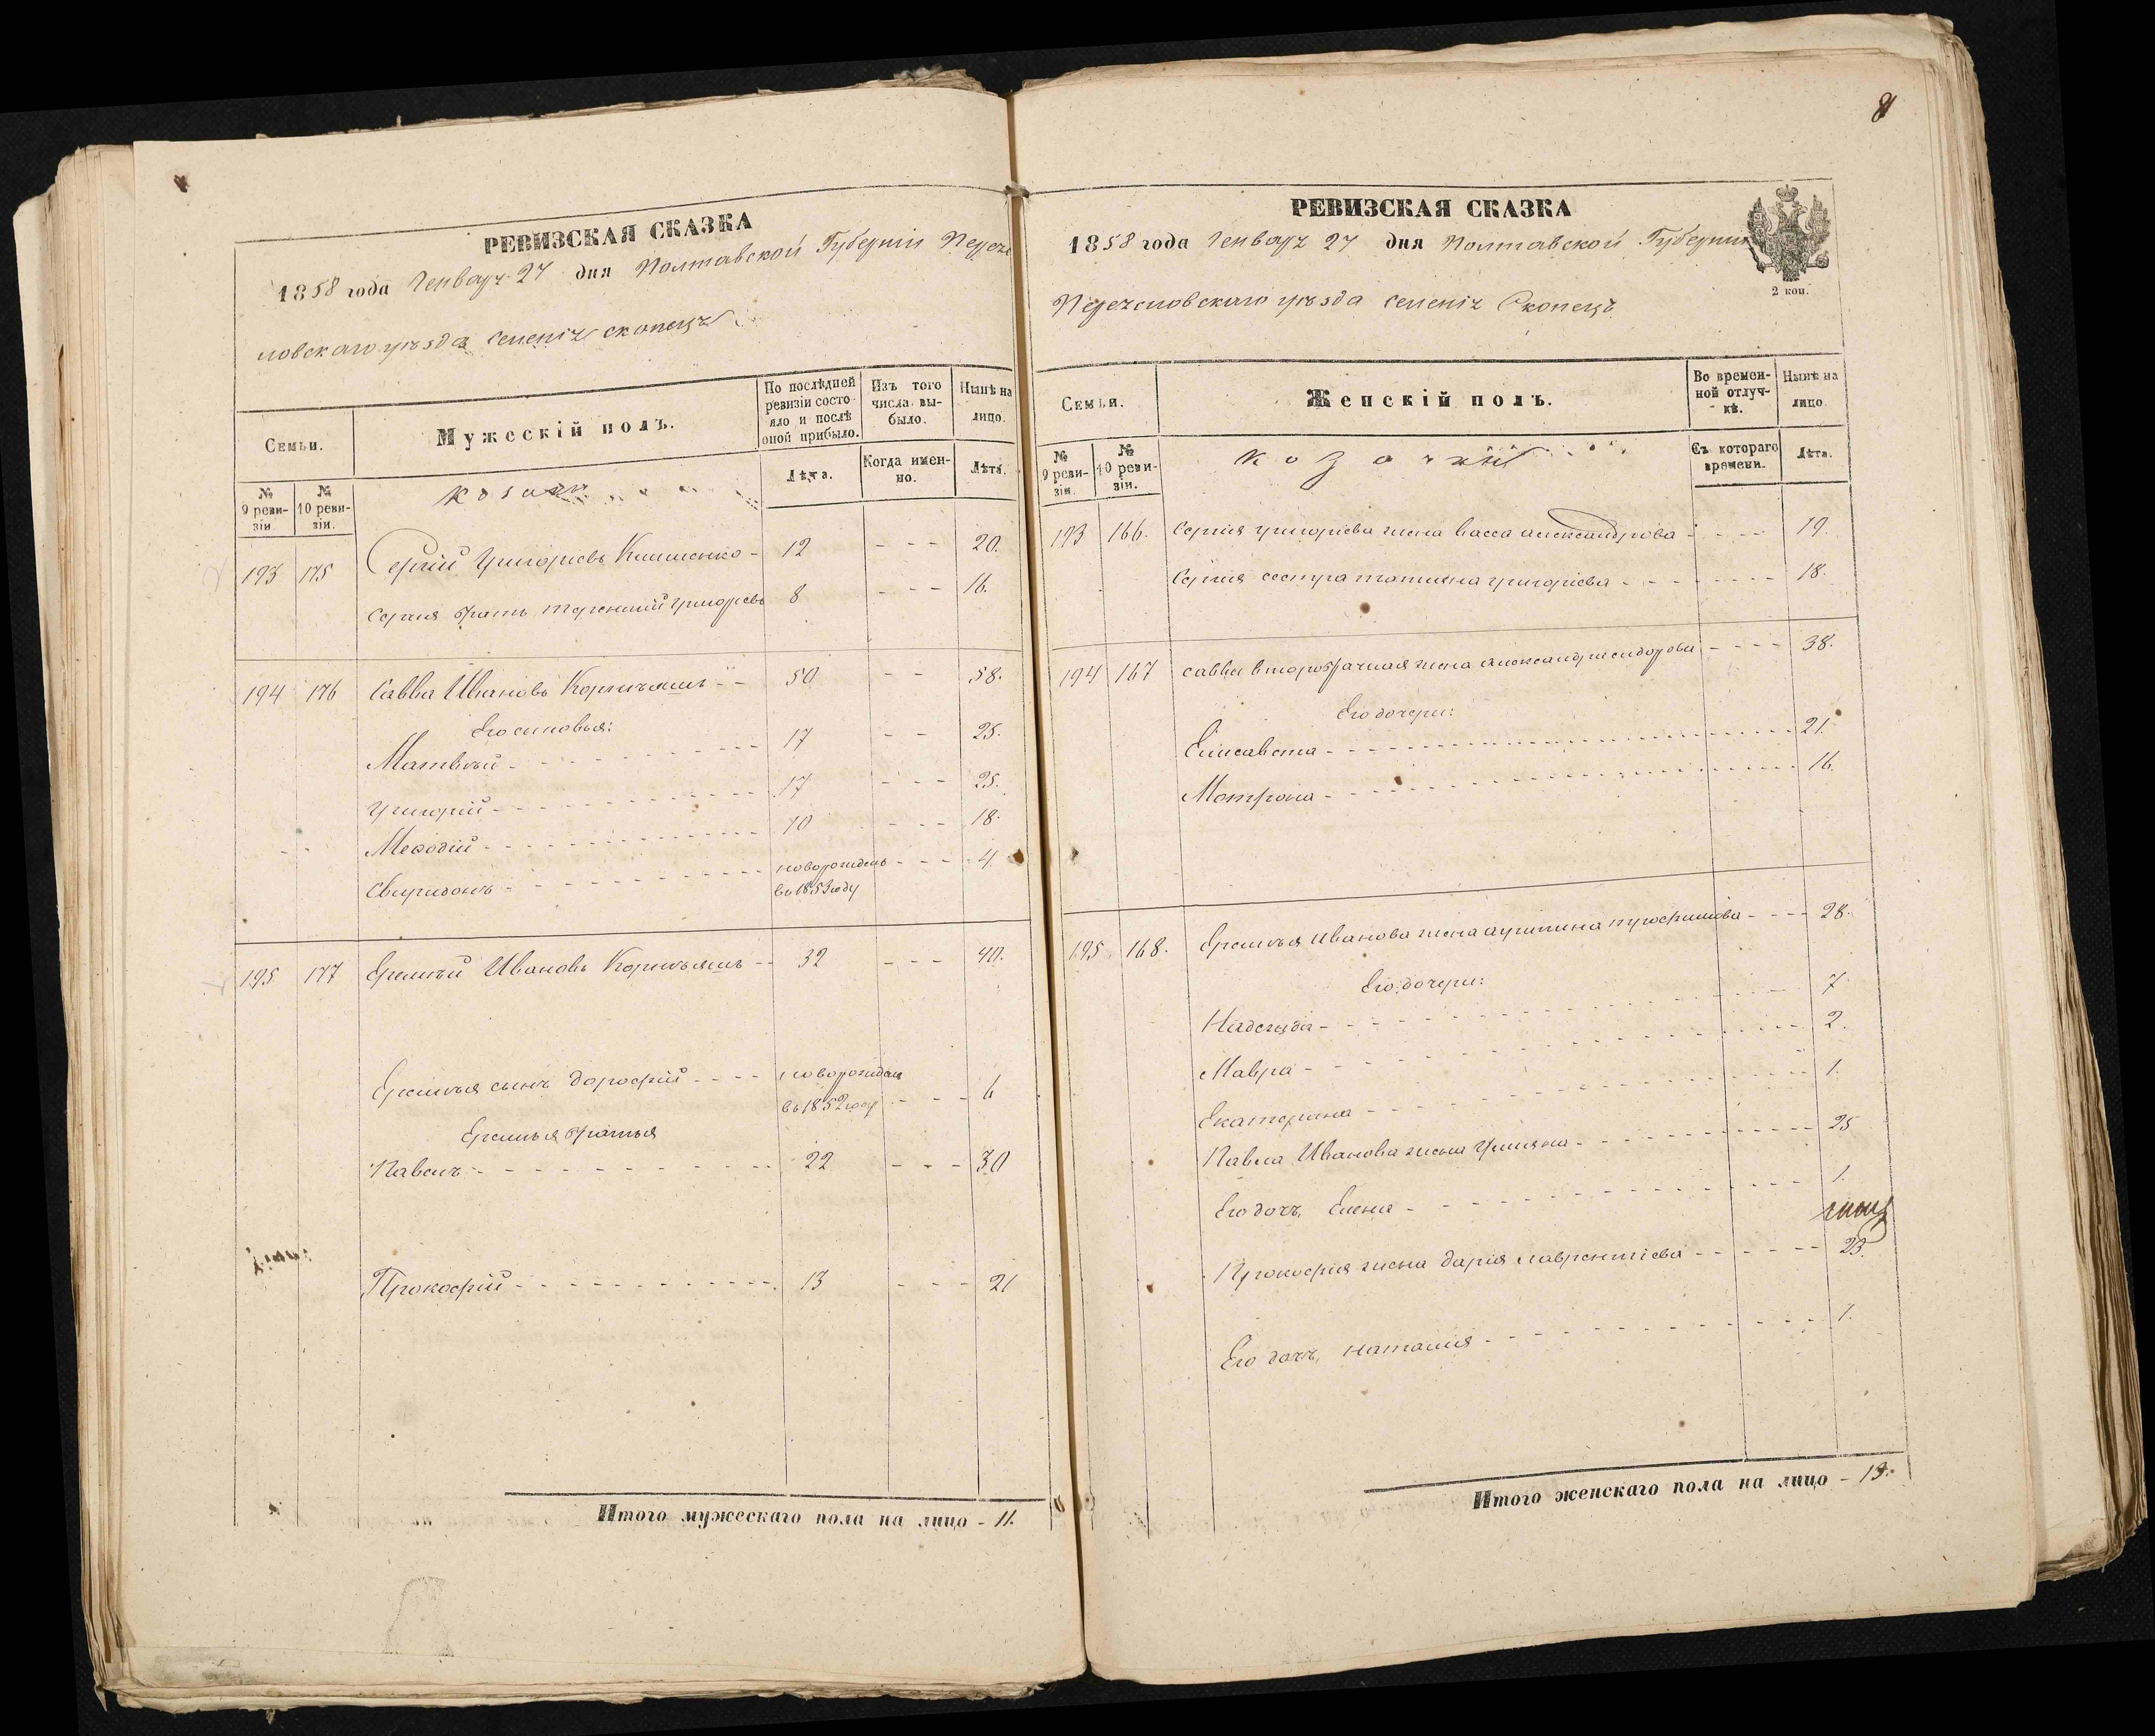 8
РЕВИЗСКАЯ СКАЗКА
1858 года Генваря 27 дня Полтавской Губерніи Перея
словскаго уѣзда селенія Скопецъ
Семьи.
Мужескій полъ.
По послѣдней ревизіи состояло и послѣ оной прибыло.
Изъ того числа выбыло.
Нынѣ на лицо.
№ 9 ревизіи.
№ 10 ревизіи.
козаки
Лѣта.
Когда именно.
Лѣта.
193 175 Сергій Григорьевъ Клименко - 12 - - - 20.
Сергія братъ Терентій Григорьевъ 8 - - - 16.
194 176 Савва Ивановъ 50 - - 58.
Его сыновья:
Матвѣй - 17 - - 25.
Григорій - 17 - - - 25.
Меѳодій - 10 - - - 18.
Свиридонъ - новорожденъ въ 1853 году - - - 4.
195 177 Еремѣй Ивановъ 32 - - - 40.
Еремѣя сынъ Дорофій - - - - новорожден въ 1852 году - - - 6
Еремѣя братья
Павелъ - 22 - - - 30
Прокофій - 13 - - - 21
Итого мужескаго пола на лицо - 11.
РЕВИЗСКАЯ СКАЗКА
1858 года Генваря 27 дня Полтавской Губерніи
2 коп.
Переясловскаго уѣзда селенія Скопецъ
Семьи.
Женскій полъ.
Во временной отлучкѣ.
Нынѣ на лицо.
№ 9 ревизіи.
№ 10 ревизіи.
козачки
Съ котораго времени.
Лѣта.
193 166. Сергія Григорьева жена Васса Александрова - - - - 19.
Сергія сестра Татьяна Григорієва - - - - 18.
194 167 Саввы второбрачная жена Александра Сидорова - - - - 38.
Его дочери:
Елисавета - 21.
Мотрона - 16.
195 168. Еремѣя Иванова жена Агрипина Трофимова - - - 28.
Его дочери:
Надежда - 7
Мавра - 2.
Екатерина - 1.
Павла Иванова жена 25
Его дочь Елена - 1.
Прокофія жена Дарія Лаврентіева - 23.
Его дочь Наталія - 1.
Итого женскаго пола на лицо - 13.